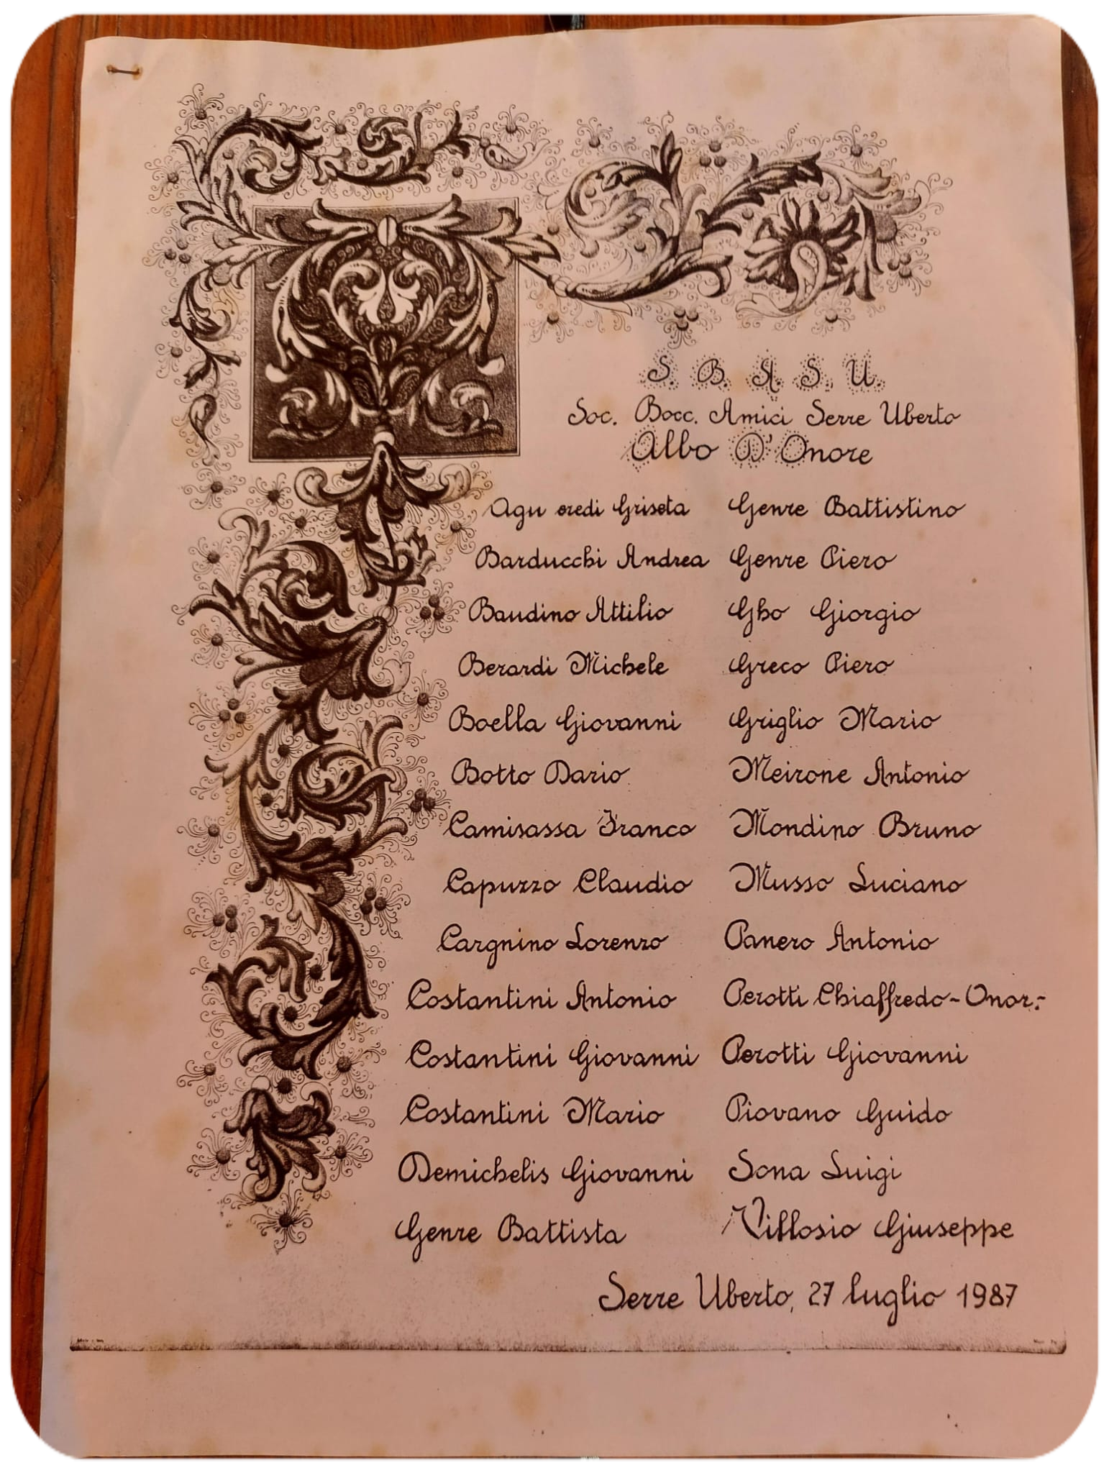 S. B. A. S. U.
Soc. Bocc. Amici Serre Uberto
Albo D'Onore
Agu eredi Griseta
Barducchi Andrea
Baudino Attilio
Berardi Michele
Boella Giovanni
Botto Dario
Camisassa Franco
Capuzzo Claudio
Cargnino Lorenzo
Costantini Antonio
Costantini Giovanni
Costantini Mario
Demichelis Giovanni
Genre Battista
Genre Battistino
Genre Piero
Gho Giorgio
Greco Piero
Griglio Mario
Meirone Antonio
Mondino Bruno
Musso Luciano
Panero Antonio
Perotti Chiaffredo-Onor.-
Perotti Giovanni
Piovano Guido
Sona Luigi
Villosio Giuseppe
Serre Uberto, 27 luglio 1987